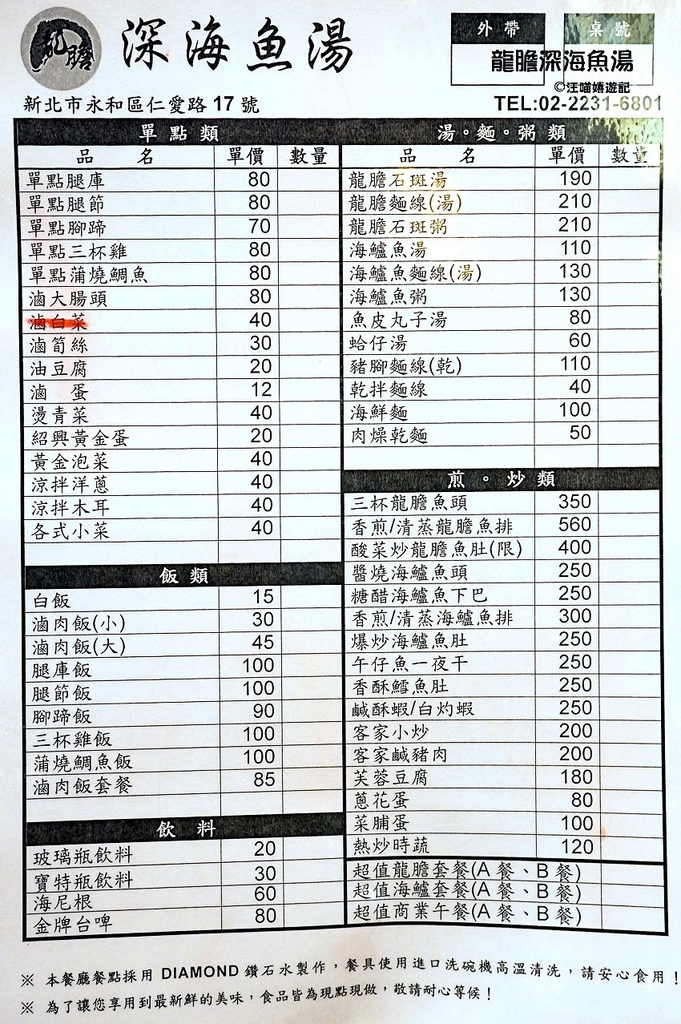 虎膽
深海魚湯
外帶
桌號
龍膽深海魚湯
©汪喵嬉遊記
新北市永和區仁愛路 17 號
TEL:02-2231-6801
單點類
品 名 單價 數量
單點腿庫 80
單點腿節 80
單點腳蹄 70
單點三杯雞 80
單點蒲燒鯛魚 80
滷大腸頭 80
滷白菜 40
滷筍絲 30
油豆腐 20
滷 蛋 12
燙青菜 40
紹興黃金蛋 20
黃金泡菜 40
涼拌洋蔥 40
涼拌木耳 40
各式小菜 40
飯類
白飯 15
滷肉飯(小) 30
滷肉飯(大) 45
腿庫飯 100
腿節飯 100
腳蹄飯 90
三杯雞飯 100
蒲燒鯛魚飯 100
滷肉飯套餐 85
飲料
玻璃瓶飲料 20
寶特瓶飲料 30
海尼根 60
金牌台啤 80
湯。麵。粥類
品 名 單價 數量
龍膽石斑湯 190
龍膽麵線(湯) 210
龍膽石斑粥 210
海鱸魚湯 110
海鱸魚麵線(湯) 130
海鱸魚粥 130
魚皮丸子湯 80
蛤仔湯 60
豬腳麵線(乾) 110
乾拌麵線 40
海鮮麵 100
肉燥乾麵 50
煎。炒類
三杯龍膽魚頭 350
香煎/清蒸龍膽魚排 560
酸菜炒龍膽魚肚(限) 400
醬燒海鱸魚頭 250
糖醋海鱸魚下巴 250
香煎/清蒸海鱸魚排 300
爆炒海鱸魚肚 250
午仔魚一夜干 250
香酥鱈魚肚 250
鹹酥蝦/白灼蝦 250
客家小炒 200
客家鹹豬肉 200
芙蓉豆腐 180
蔥花蛋 80
菜脯蛋 100
熱炒時蔬 120
超值龍膽套餐(A 餐、B 餐)
超值海鱸套餐(A 餐、B 餐)
超值商業午餐(A 餐、B 餐)
※ 本餐廳餐點採用 DIAMOND 鑽石水製作，餐具使用進口洗碗機高溫清洗，請安心食用！
※ 為了讓您享用到最新鮮的美味，食品皆為現點現做，敬請耐心等候！